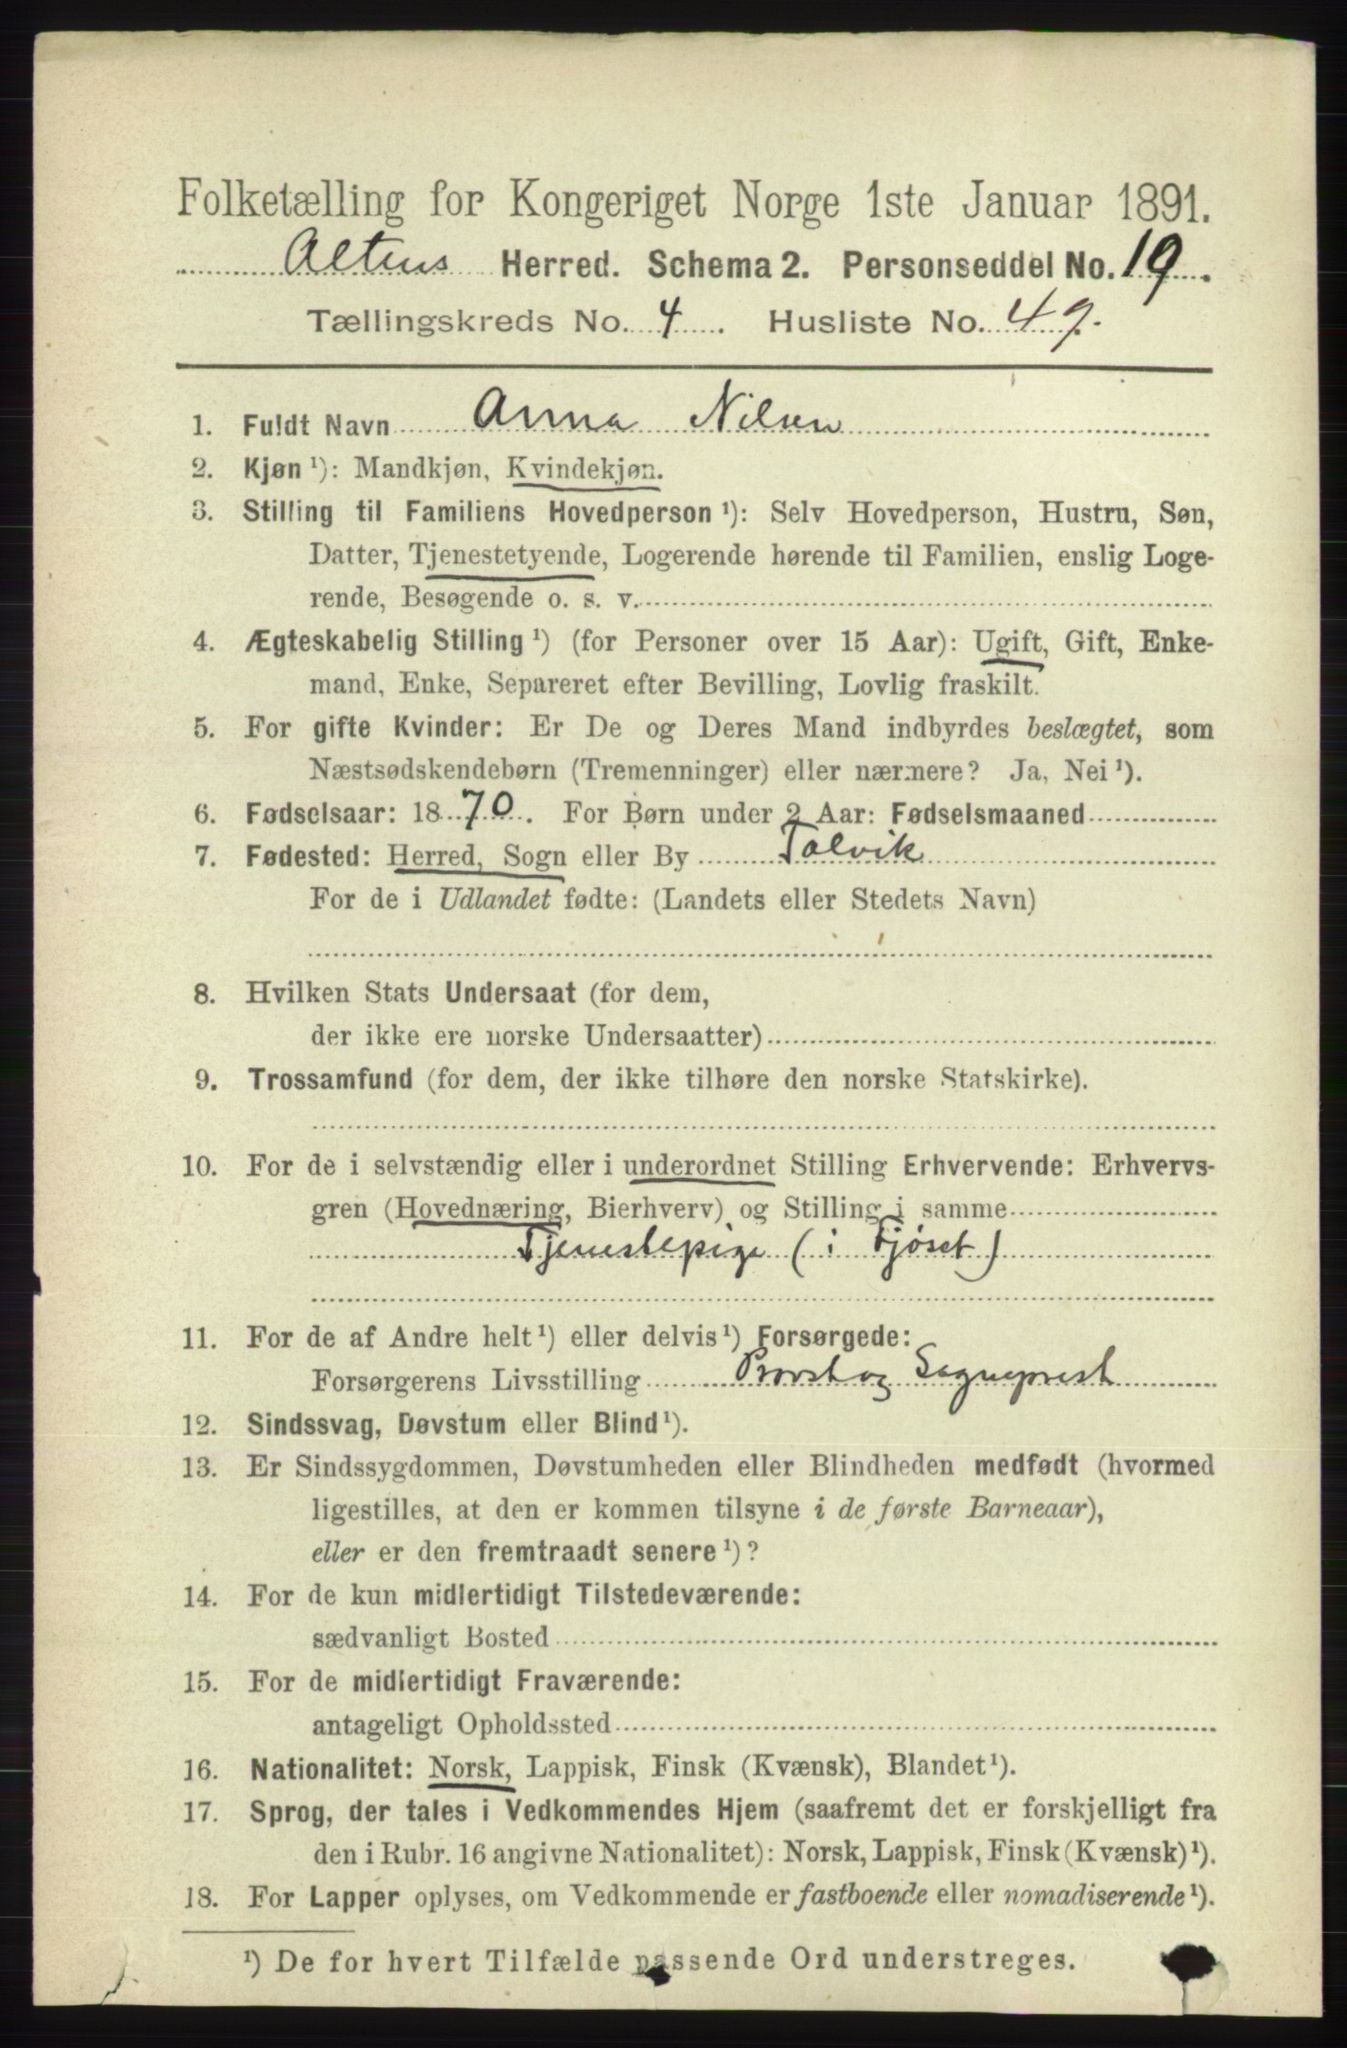 Folketælling for Kongeriget Norge 1ste Januar 1891.
Altens Herred. Schema 2. Personseddel No. 19.
Tællingskreds No. 4. Husliste No. 49.
1. Fuldt Navn Anna Nilsen
2. Kjøn ¹): Mandkjøn, Kvindekjøn.
3. Stilling til Familiens Hovedperson ¹): Selv Hovedperson, Hustru, Søn,
Datter, Tjenestetyende, Logerende hørende til Familien, enslig Loge-
rende, Besøgende o. s. v.
4. Ægteskabelig Stilling ¹) (for Personer over 15 Aar): Ugift, Gift, Enke-
mand, Enke, Separeret efter Bevilling, Lovlig fraskilt.
5. For gifte Kvinder: Er De og Deres Mand indbyrdes beslægtet, som
Næstsødskendebørn (Tremenninger) eller nærmere? Ja, Nei ¹).
6. Fødselsaar: 1870. For Børn under 2 Aar: Fødselsmaaned
7. Fødested: Herred, Sogn eller By Talvik
For de i Udlandet fødte: (Landets eller Stedets Navn)
8. Hvilken Stats Undersaat (for dem,
der ikke ere norske Undersaatter)
9. Trossamfund (for dem, der ikke tilhøre den norske Statskirke).
10. For de i selvstændig eller i underordnet Stilling Erhvervende: Erhvervs-
gren (Hovednæring, Bierhverv) og Stilling i samme
Tjenestepige (i Fjøset)
11. For de af Andre helt ¹) eller delvis ¹) Forsørgede:
Forsørgerens Livsstilling Provst og Sogneprest
12. Sindssvag, Døvstum eller Blind ¹).
13. Er Sindssygdommen, Døvstumheden eller Blindheden medfødt (hvormed
ligestilles, at den er kommen tilsyne i de første Barneaar),
eller er den fremtraadt senere ¹)?
14. For de kun midlertidigt Tilstedeværende:
sædvanligt Bosted
15. For de midlertidigt Fraværende:
antageligt Opholdssted
16. Nationalitet: Norsk, Lappisk, Finsk (Kvænsk), Blandet ¹).
17. Sprog, der tales i Vedkommendes Hjem (saafremt det er forskjelligt fra
den i Rubr. 16 angivne Nationalitet): Norsk, Lappisk, Finsk (Kvænsk) ¹).
18. For Lapper oplyses, om Vedkommende er fastboende eller nomadiserende ¹).
¹) De for hvert Tilfælde passende Ord understreges.